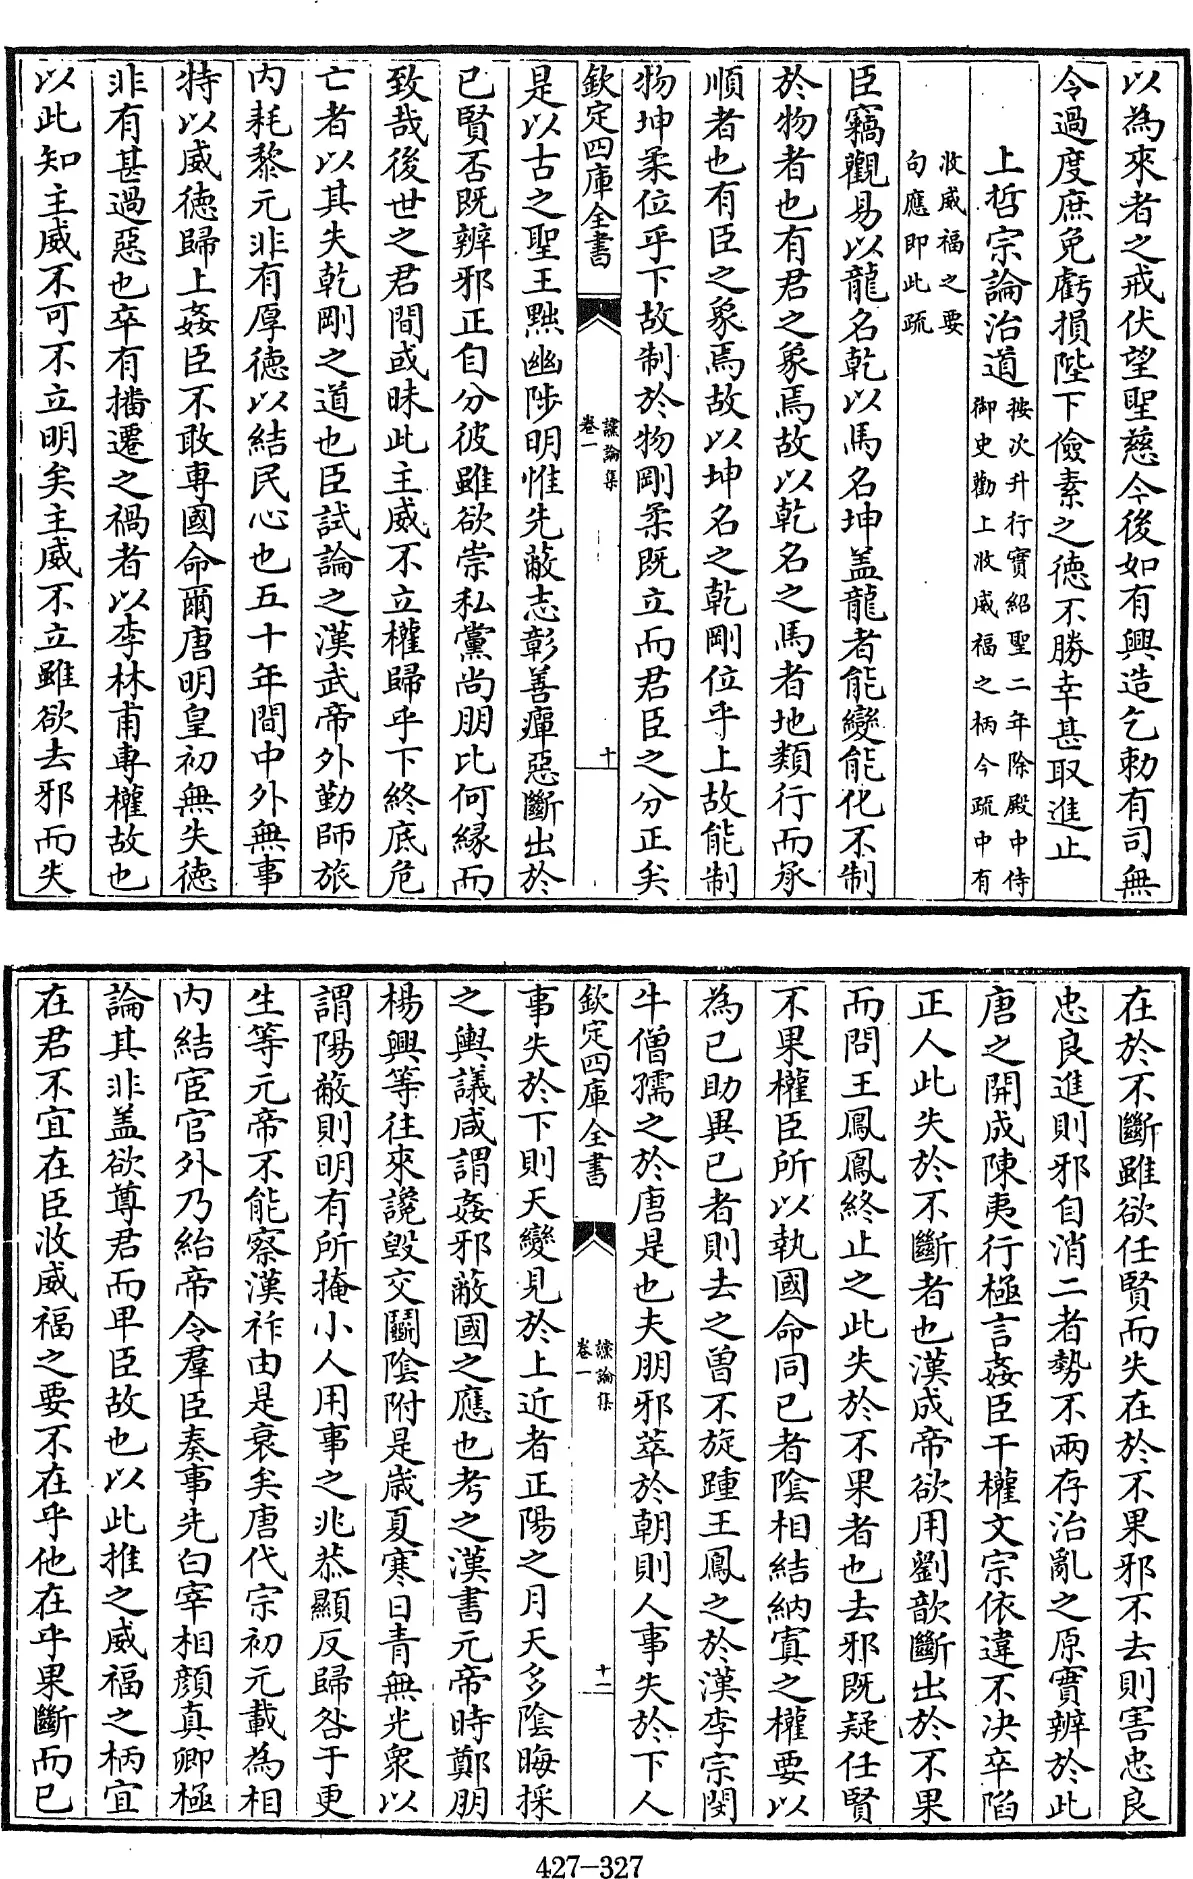 以為來者之戒伏望聖慈今後如有興造乞勅有司無
令過度庶免虧損陛下儉素之德不勝幸甚取進止
上哲宗論治道按次升行實紹聖二年除殿中侍
御史勸上收威福之柄今疏中有
收威福之要
句應即此疏
臣竊觀易以龍名乾以馬名坤盖龍者能變能化不制
於物者也有君之象焉故以乾名之馬者地類行而承
順者也有臣之象焉故以坤名之乾剛位乎上故能制
物坤柔位乎下故制於物剛柔既立而君臣之分正矣
欽定四庫全書
讜論集
卷一
十
是以古之聖王黜幽陟明惟先蔽志彰善癉惡斷出於
已賢否既辨邪正自分彼雖欲崇私黨尚朋比何緣而
致哉後世之君間或昧此主威不立權歸乎下終底危
亡者以其失乾剛之道也臣試論之漢武帝外勤師旅
内耗黎元非有厚德以結民心也五十年間中外無事
特以威德歸上姦臣不敢専國命爾唐明皇初無失德
非有甚過惡也卒有播遷之禍者以李林甫専權故也
以此知主威不可不立明矣主威不立雖欲去邪而失
在於不斷雖欲任賢而失在於不果邪不去則害忠良
忠良進則邪自消二者勢不兩存治亂之原實辨於此
唐之開成陳夷行極言姦臣干權文宗依違不决卒陷
正人此失於不斷者也漢成帝欲用劉歆斷出於不果
而問王鳳鳳終止之此失於不果者也去邪既疑任賢
不果權臣所以執國命同已者陰相結納寘之權要以
為已助異已者則去之曽不旋踵王鳳之於漢李宗閔
牛僧孺之於唐是也夫朋邪萃於朝則人事失於下人
欽定四庫全書
讜論集
卷一
十二
事失於下則天變見於上近者正陽之月天多陰晦採
之輿議咸謂姦邪蔽國之應也考之漢書元帝時鄭朋
楊興等往來讒毁交鬭陰附是歳夏寒日青無光衆以
謂陽蔽則明有所掩小人用事之兆恭顯反歸咎于更
生等元帝不能察漢祚由是衰矣唐代宗初元載為相
内結宦官外乃紿帝令羣臣奏事先白宰相顔真卿極
論其非盖欲尊君而卑臣故也以此推之威福之柄宜
在君不宜在臣收威福之要不在乎他在乎果斷而已
427-327